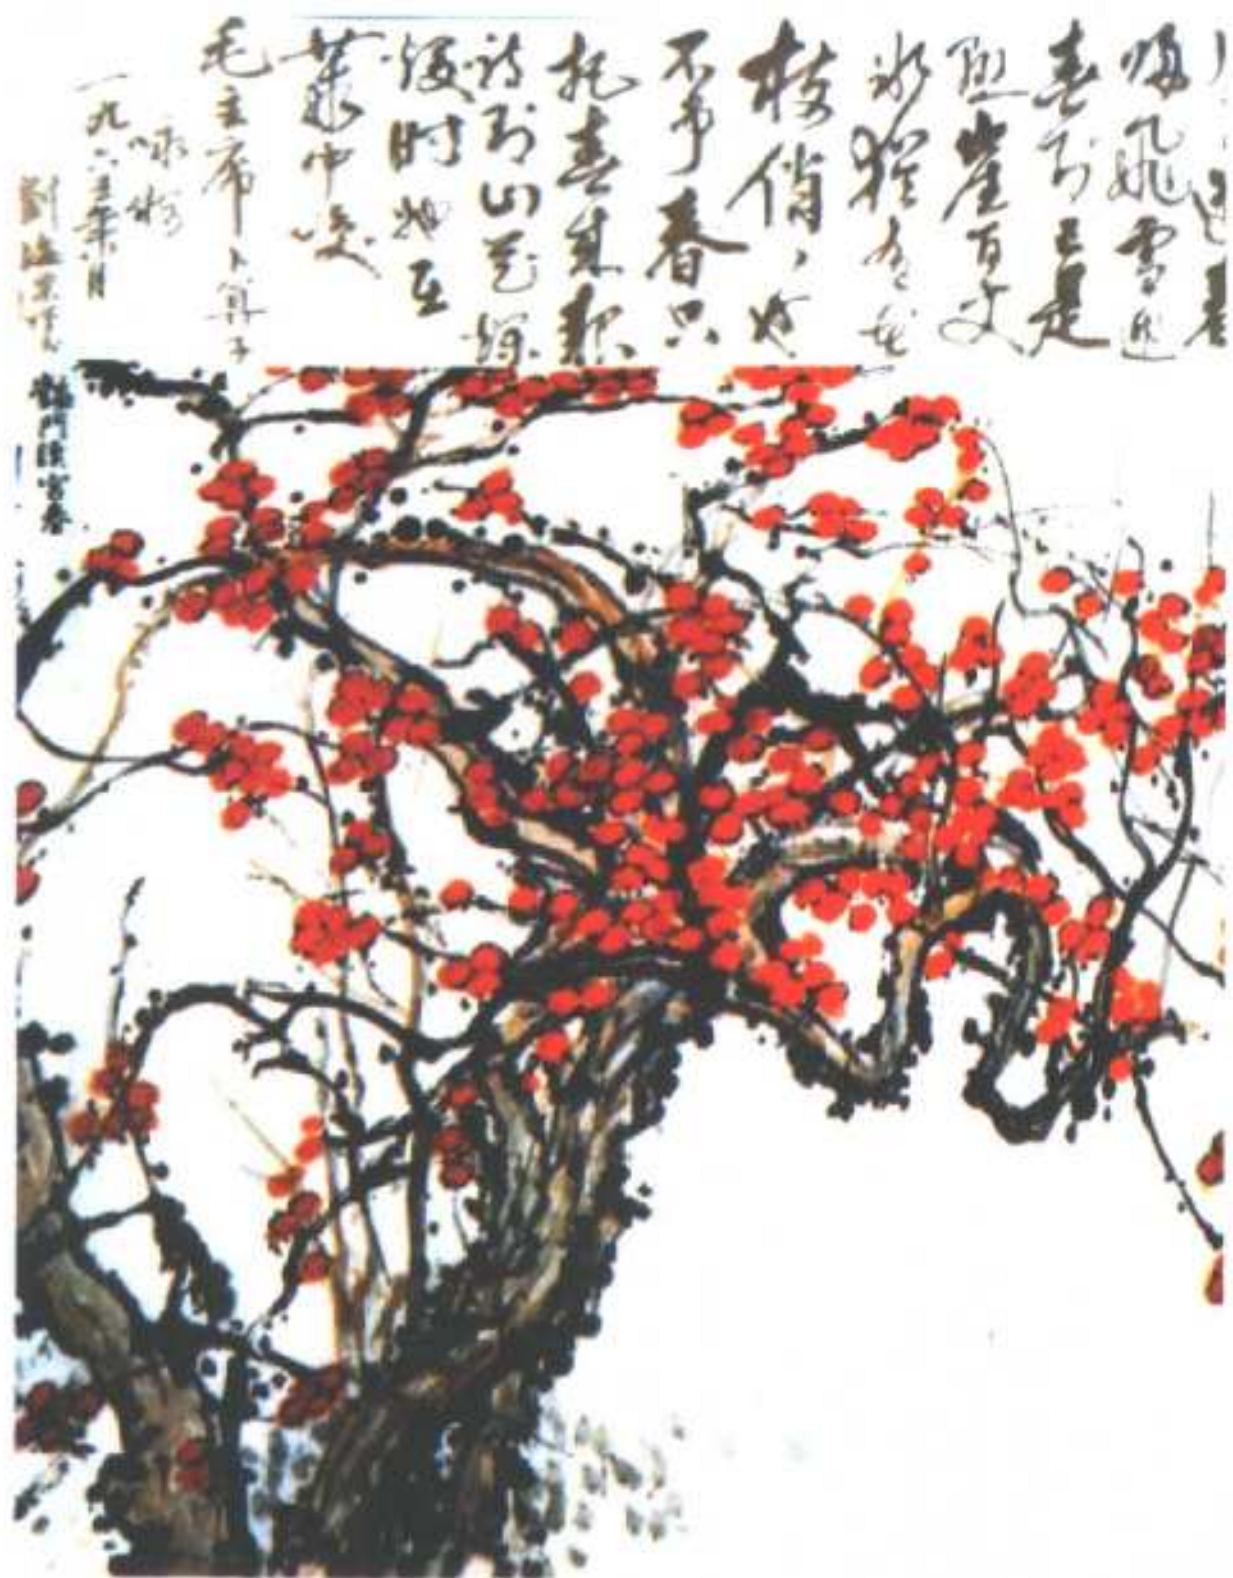 送春
归飛雪迎
春到已是
悬崖百丈
冰猶有花
枝俏、也
不争春只
把春来報
待到山花爛
漫时她在
叢中笑
毛主席卜算子
咏梅
一九六 年 月
劉海粟
門漢宮春